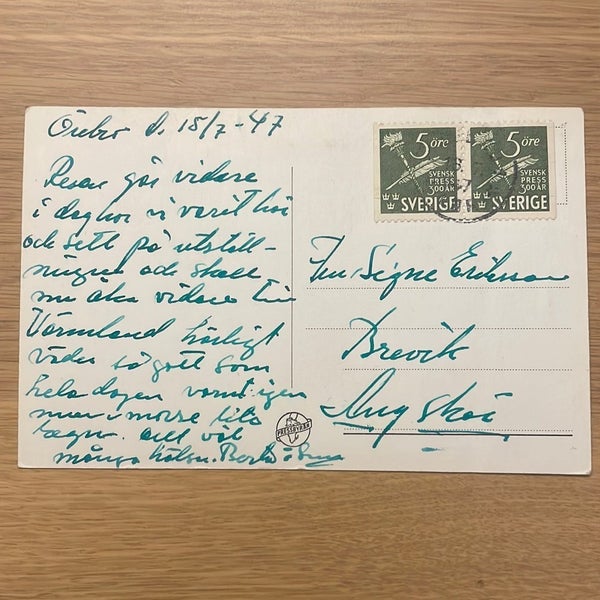 Örebro d. 18/7-47
Resan går vidare
i dag har vi varit här
och sett på utställ-
ningen och skall
nu åka vidare till
Värmland härligt
väder så gott som
hela dagen varmt igen
men i morse lite
regn. allt väl
många hälsn.
5 öre
SVENSK
PRESS
300 ÅR
SVERIGE
5 öre
SVENSK
PRESS
300 ÅR
SVERIGE
Fru Signe Eriksson
Brevik
Ängskär
PRESSBYRÅN